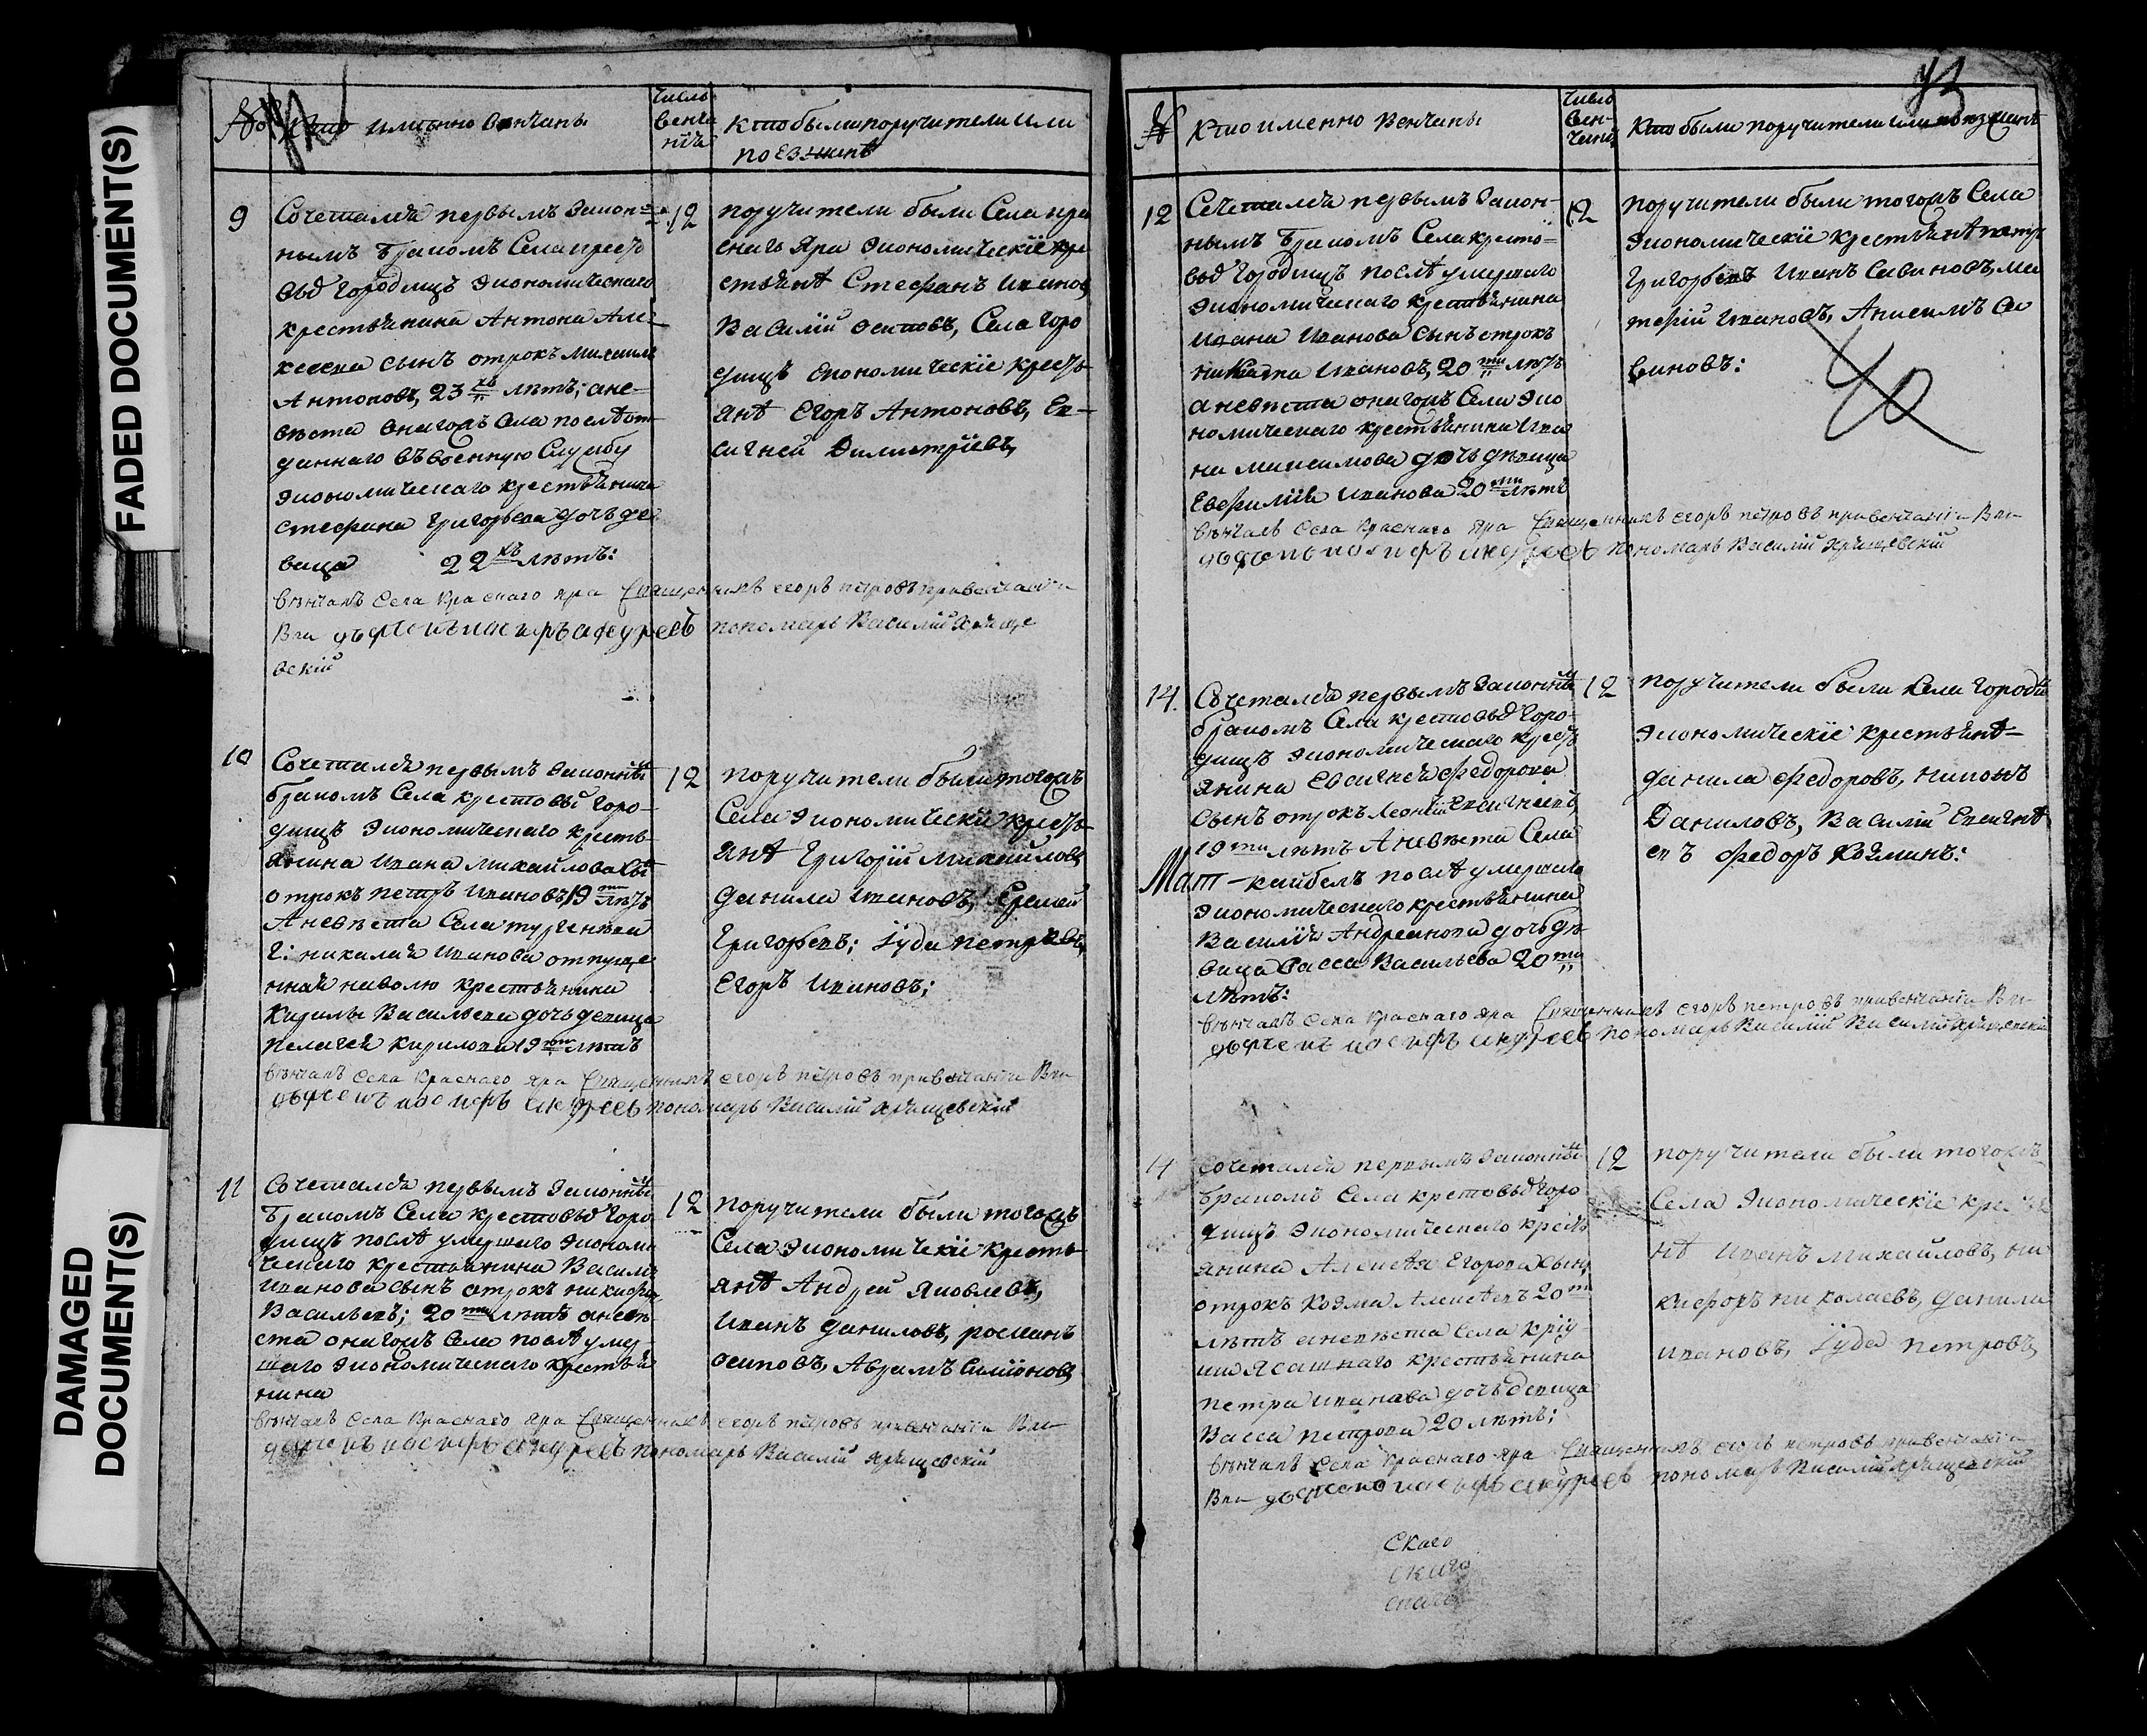 FADED DOCUMENT(S)
DAMAGED
DOCUMENT(S)
№
имянно венчаны
число
венча
нiя
кто были поручители или
поезжанѣ
9
Сочетался первымъ закон-
нымъ бракомъ Села крест
Городищъ экономическаго
крестьянина Антона Але-
ксеева сынъ отрокъ Михаилъ
Антоновъ, 23 хъ лѣтъ; а не-
вѣста онагожъ Села послѣ от-
даннаго въ военную Службу
экономическаго крестьянина
Стефана Григорьева дочь де
вица 22 хъ лѣтъ:
12
поручители были Села кра
снаго Яра экономическiе кре
стьянѣ Стефанъ Ивановъ,
Василiй осиповъ, Села Горо
дищъ экономическiе кресть-
янѣ Егоръ Антоновъ, Ев-
сигней Димитрiевъ,
вѣнчалъ Села Краснаго яра Священникъ егоръ петровъ при венчанiи
пономарь Василiй
вскiй
10
Сочетался первымъ законны
бракомъ Села крестовыя Горо-
дищъ экономическаго кресть-
янина Ивана Михайлова сы
отрокъ петръ Ивановъ 19 ти лѣтъ
А невѣста Села тургенева
Г: николая Иванова отпуще
нной на волю крестьянина
Кирилы Васильева дочь девица
Пелагея Кирилова 19 ти лѣтъ
12
поручители были тогожъ
Села экономически кресть-
янѣ Григорiй Михайловъ,
данила Ивановъ, Еремей
Григорьевъ; Iуда петровъ,
Егоръ Ивановъ;
вѣнчалъ Села Краснаго яра Священникъ егоръ петровъ при венчанiи
пономарь Василiй
11
Сочетался первымъ законны
бракомъ Села крестовыя Горо
дищъ послѣ умершаго экономи
ческаго крестьянина Василья
Иванова сынъ отрокъ никифоръ
Васильевъ; 20 ти лѣтъ а невѣ-
ста онагожъ Села послѣ умер-
шаго экономическаго крестья
нина
12
поручители были тогожъ
Села экономическiе кресть-
янѣ Андрей Яковлевъ,
Иванъ даниловъ, романъ
осиповъ, Аврамъ Симiоновъ,
вѣнчалъ Села Краснаго яра Священникъ егоръ петровъ при венчанiи
пономарь Василiй
№
кто именно венчаны
число
вен-
чанiя
кто были поручители или поезжанѣ
12
Сочетался первымъ закон-
нымъ бракомъ Села кресто-
выя Городищъ послѣ умершаго
экономическаго крестьянина
Ивана Иванова сынъ отрокъ
никита Ивановъ, 20 ти лѣтъ
а невѣста онагожъ Села эко
номическаго крестьянина Ива
на Максимова дочь девица
Евфимiя Иванова 20 ти лѣтъ
12
поручители были тогожъ Села
экономическiе крестьянѣ петръ
Григорьевъ Иванъ Савиновъ, Ма
терiй Ивановъ, Анисимъ Са
виновъ:
40
вѣнчалъ Села Краснаго яра Священникъ егоръ петровъ при венчанiи
пономарь Василiй
14.
Сочетался первымъ законны
бракомъ Села крестовыя Горо-
дищъ экономическаго кресть
янина Евсигнея Федорова
сынъ отрокъ Леонтiй Евсигнеевъ,
19 ти лѣтъ А невѣста Села
Мат-каибелъ послѣ умершаго
экономическаго крестьянина
Василiя Андреянова дочь дѣ
вица Васса Васильева 20 ти
лѣтъ:
12
поручители были Села Городищ
экономическiе крестьянѣ-
данила Федоровъ, никонъ
Даниловъ, Василiй Евсигнѣ
евъ Федоръ Козминъ:
вѣнчалъ Села Краснаго яра Священникъ егоръ петровъ при венчанiи
пономарь Василiй Василiй
Сочетался первымъ законны
бракомъ Села крестовыя Горо
дищъ экономическаго кресть
янина Алексѣя Егорова сынъ,
отрокъ Козма Алексѣевъ 20 ти
лѣтъ а невѣста Села Крiу
ши Ясашнаго крестьянина
Петра Иванова дочь девица
Васса петрова 20 лѣтъ;
12
поручители были тогожъ
Села экономическiе крестья
нѣ Иванъ Михайловъ, ни
кифоръ николаевъ, данила
Ивановъ, Iуда петровъ,
вѣнчалъ Села Краснаго яра Священникъ егоръ петровъ при венчанiи
пономарь Василiй
Скаго
скаго
скаго